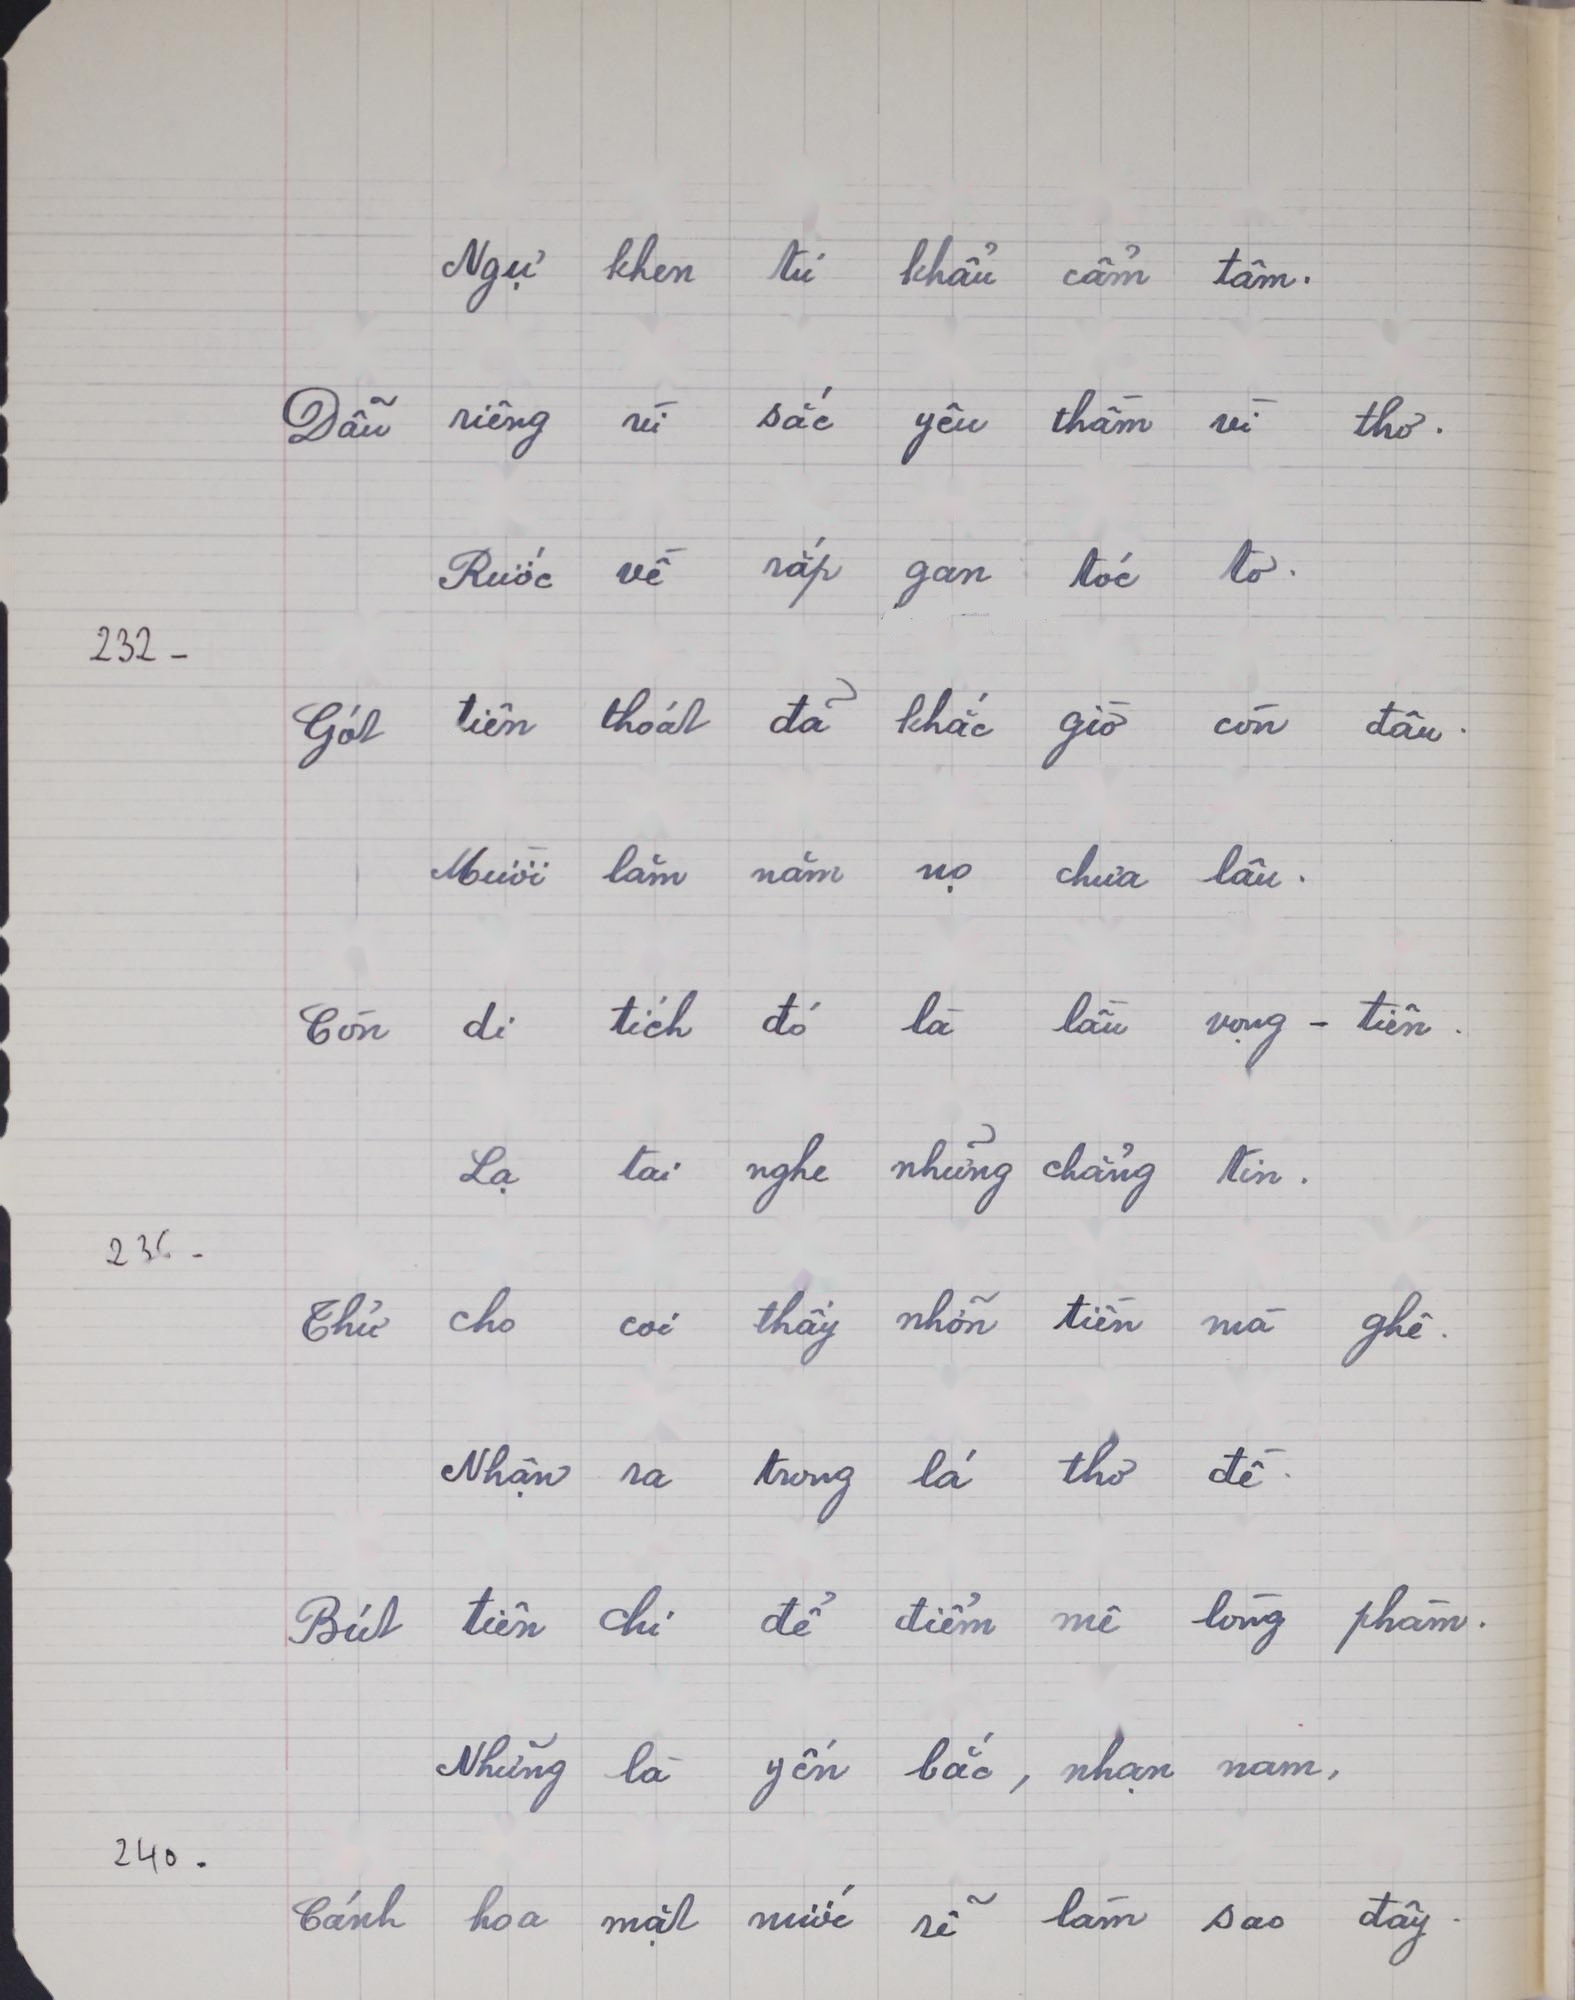 Ngự khen tú khẩu cẩm tâm.
Dẫu riêng vì sắc yêu thầm vì thơ.
Rước về ráp gan tóc tơ.
232 -
Gót tiên thoát đả khắc giờ còn đâu.
Mười lăm năm nọ chưa lâu.
Còn di tích đó là lầu vọng - tiên.
Lạ tai nghe nhửng chẳng tin.
236 -
Thử cho coi thấy nhỡn tiền mà ghê.
Nhận ra trong lá thơ đề.
Bút tiên chỉ để điểm mê lòng phàm.
Những là yến bắc, nhạn nam,
240.
Cánh hoa mặt nước rẽ làm sao đây.